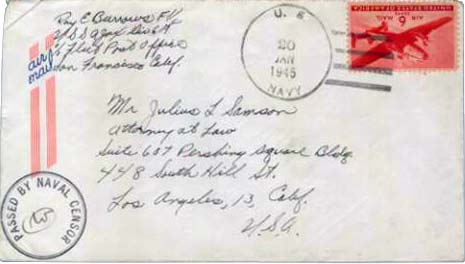 Ray E Burrows F 1/c
U.S.S. Ajax Div. A
c/o Fleet Post Office
San Francisco Calif.
air
mail
U. S.
20
JAN
1945
NAVY
UNITED STATES OF AMERICA
6
CENTS
AIR MAIL
Mr Julius L Samson
Attorney at Law
Suite 607 Pershing Square Bldg.
448 South Hill St.
Los Angeles, 13, Calif.
U.S.A.
PASSED BY NAVAL CENSOR